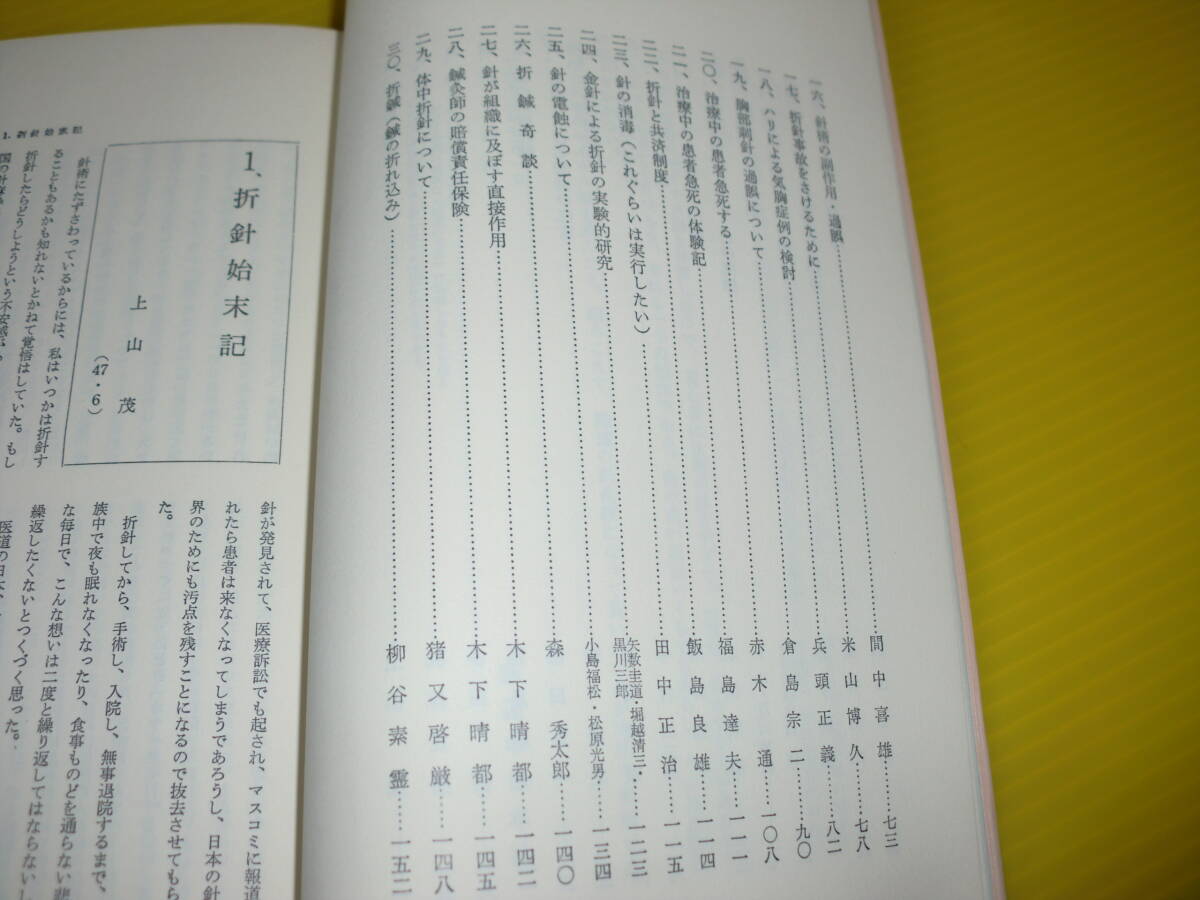 一六、針術の副作用・過誤……間中喜雄……七三
一七、折針事故をさけるために……米山博久……七八
一八、ハリによる気胸症例の検討……兵頭正義……八二
一九、胸部刺針の過誤について……倉島宗二……九〇
二〇、治療中の患者急死する……赤木通……一〇八
二一、治療中の患者急死の体験記……福島達夫……一一一
二二、折針と共済制度……飯島良雄……一一四
二三、針の消毒(これぐらいは実行したい)……田中正治……一一五
二四、金針による折針の実験的研究……矢数圭道・堀越清三・黒川三郎……一二三
二五、針の電蝕について……小島福松・松原光男……一三四
二六、折鍼奇談……森秀太郎……一四〇
二七、針が組織に及ぼす直接作用……木下晴都……一四二
二八、鍼灸師の賠償責任保険……木下晴都……一四五
二九、体中折針について……猪又啓厳……一四八
三〇、折鍼(鍼の折れ込み)……柳谷素霊……一五二
1. 折針始末記
1、折針始末記
上山茂
(47・6)
針術にたずさわっているからには、私はいつかは折針す
ることもあるかも知れないとかねて覚悟はしていた。もし
折針したらどうしようという不安感
針が発見されて、医療訴訟でも起され、マスコミに報道
れたら患者は来なくなってしまうであろうし、日本の針
界のためにも汚点を残すことになるので抜去させてもら
た。
折針してから、手術し、入院し、無事退院するまで、
族中で夜も眠れなくなったり、食事ものどを通らない悲
な毎日で、こんな想いは二度と繰り返してはならないし
繰返したくないとつくづく思った。
医道の日本